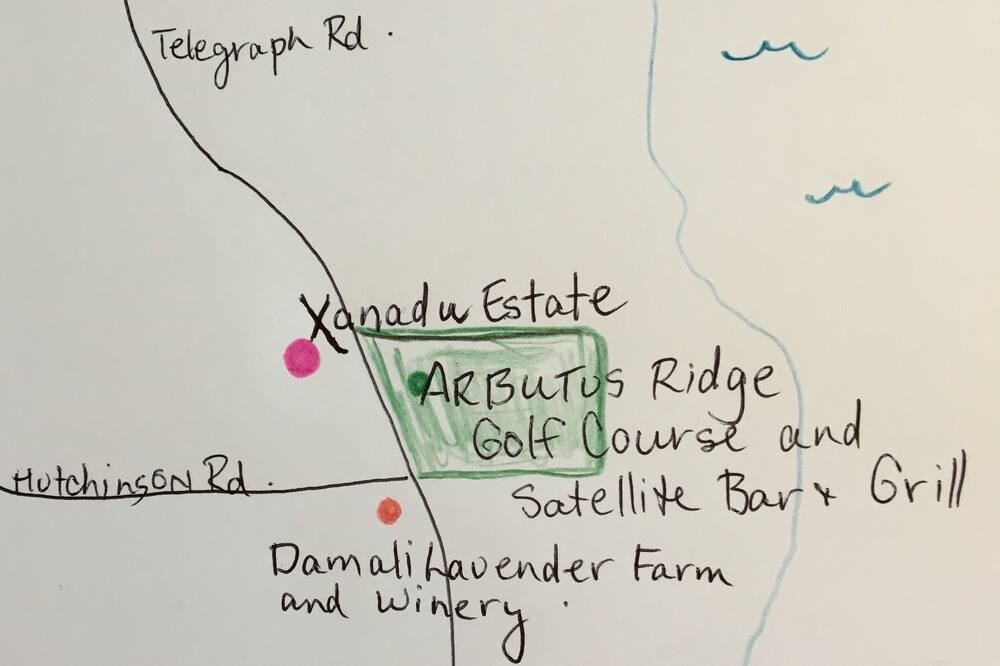 Telegraph Rd.
Xanadu Estate
ARBUTUS Ridge
Golf Course and
Satellite Bar + Grill
Hutchinson Rd.
Damali Lavender Farm
and Winery.